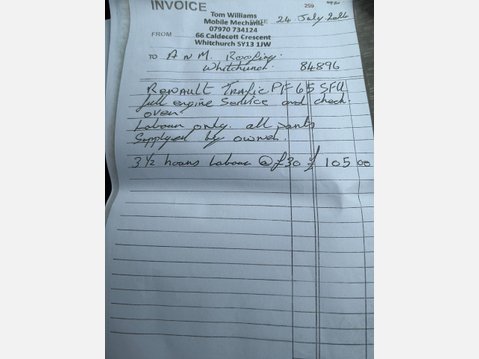 INVOICE 259
Tom Williams
Mobile Mechanic
07970 734124
DATE 24 July 2024
FROM 66 Caldecott Crescent
Whitchurch SY13 1JW
TO A N M. Roofing.
Whitchurch 84896
Renault Trafic PF65 SFU
full engine Service and check
over.
Labour only. all parts
Supplyed by owner.
3 1/2 hours Labour @ £30 £ 105 00